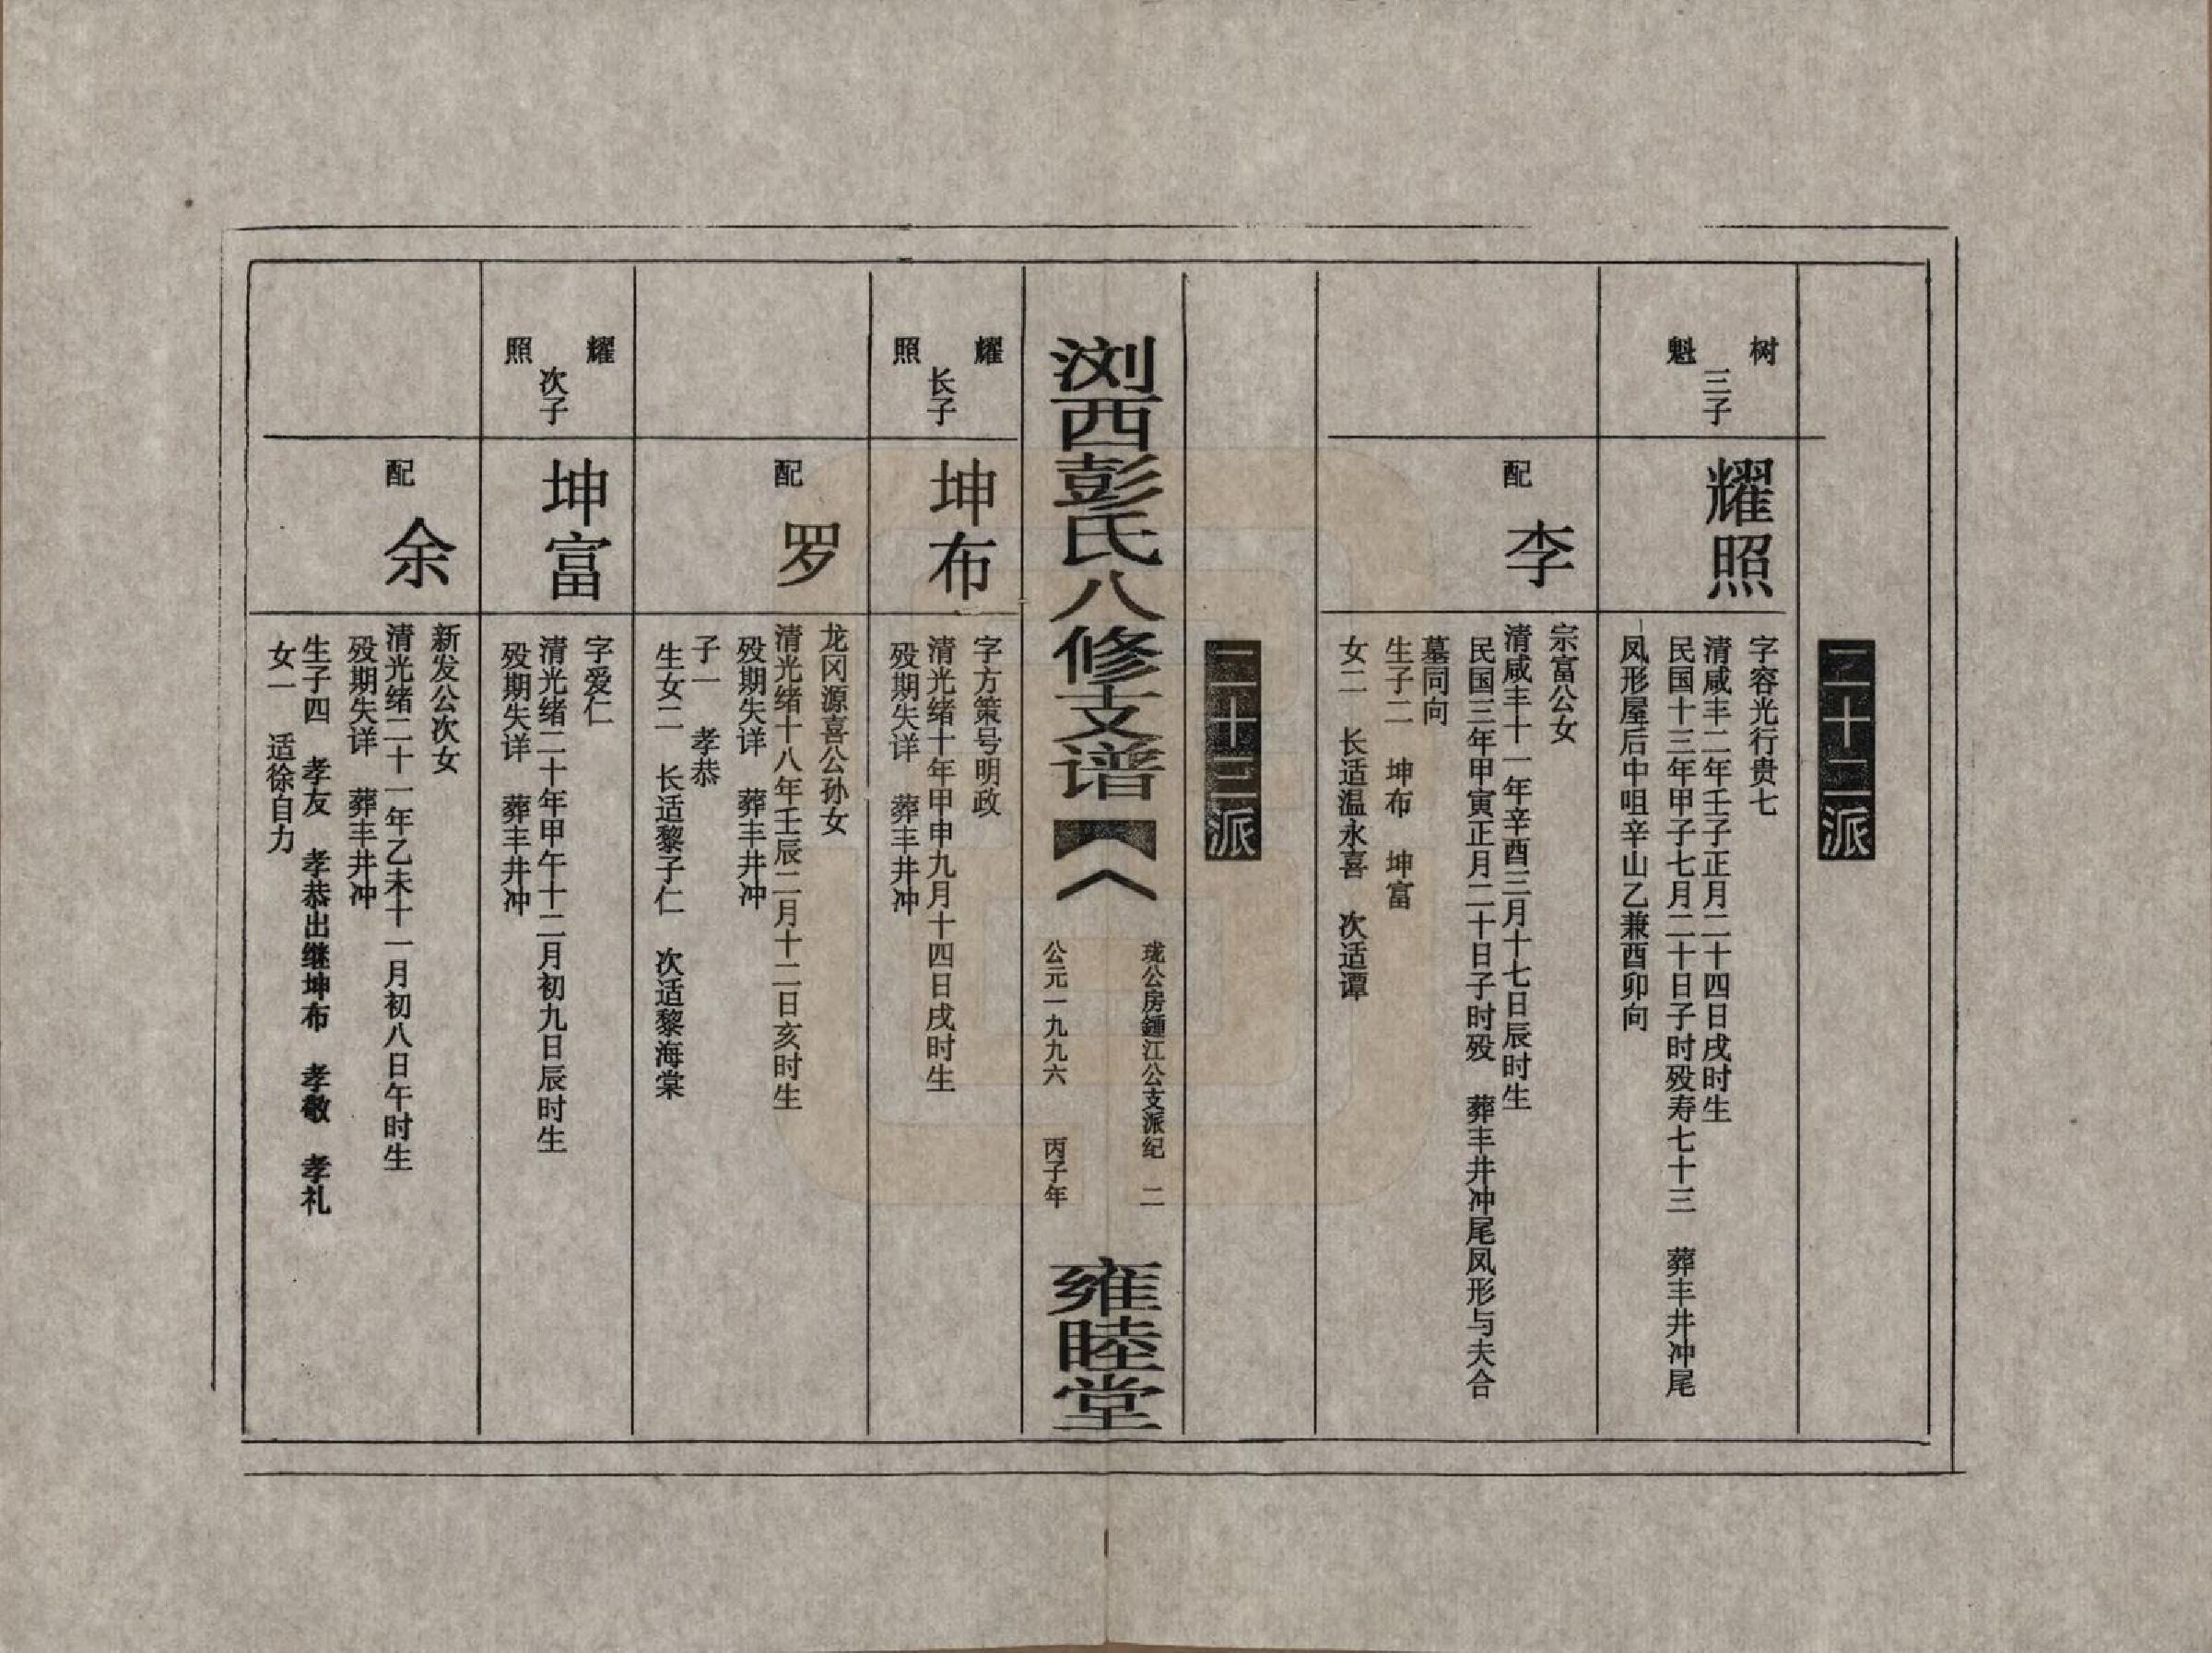 二十二派
树魁三子
耀照
字容光行贵七
清咸丰二年壬子正月二十四日戌时生
民国十三年甲子七月二十日子时殁寿七十三 葬丰井冲尾
凤形屋后中咀辛山乙兼酉卯向
配 李
宗富公女
清咸丰十一年辛酉三月十七日辰时生
民国三年甲寅正月二十日子时殁 葬丰井冲尾凤形与夫合
墓同向
生子二 坤布 坤富
女二 长适温永喜 次适谭
二十三派
浏西彭氏八修支谱
珑公房鍾江公支派纪 二
公元一九九六 丙子年
雍睦堂
耀照长子
坤布
字方策号明政
清光绪十年甲申九月十四日戌时生
殁期失详 葬丰井冲
配 罗
龙冈源喜公孙女
清光绪十八年壬辰二月十二日亥时生
殁期失详 葬丰井冲
子一 孝恭
生女二 长适黎子仁 次适黎海棠
耀照次子
坤富
字爱仁
清光绪二十年甲午十二月初九日辰时生
殁期失详 葬丰井冲
配 余
新发公次女
清光绪二十一年乙未十一月初八日午时生
殁期失详 葬丰井冲
生子四 孝友 孝恭出继坤布 孝敬 孝礼
女一 适徐自力